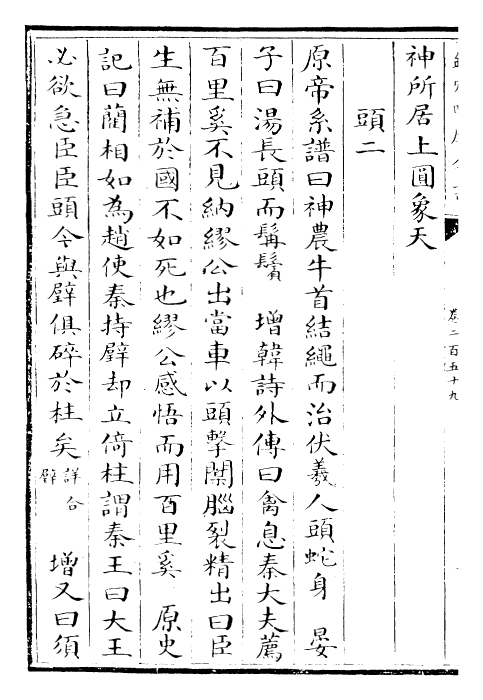 卷二百五十九
神所居上圓象天
頭二
原帝系譜曰神農牛首結繩而治伏羲人頭蛇身 晏
子曰湯長頭而髯鬢 增韓詩外傳曰禽息秦大夫薦
百里奚不見納繆公出當車以頭擊闑腦裂精出曰臣
生無補於國不如死也繆公感悟而用百里奚 原史
記曰藺相如為趙使秦持璧却立倚柱謂秦王曰大王
必欲急臣臣頭今與璧俱碎於柱矣詳合璧 增又曰須